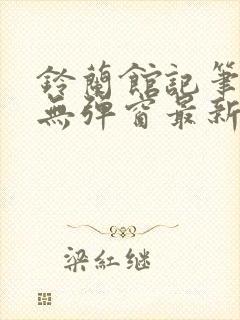 鈴蘭館記筆
無彈窗最新
梁紅继